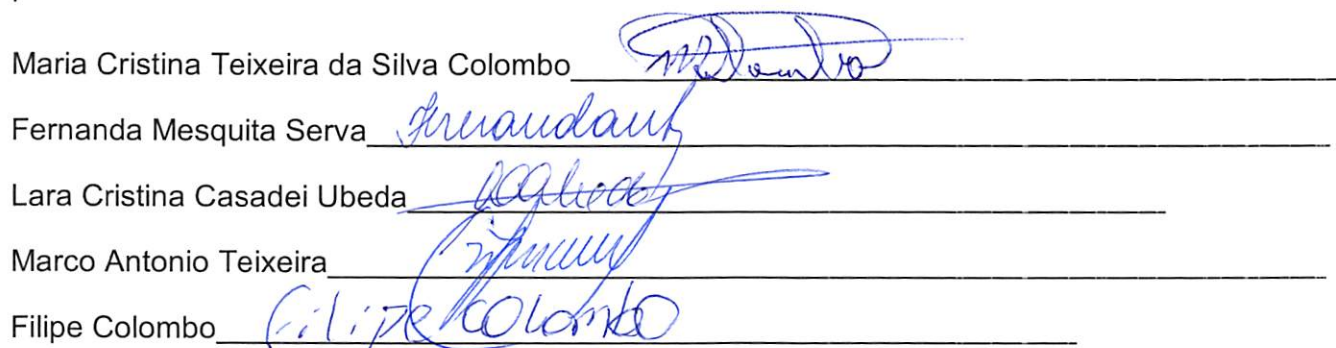 Maria Cristina Teixeira da Silva Colombo
Fernanda Mesquita Serva
Lara Cristina Casadei Ubeda
Marco Antonio Teixeira
Filipe Colombo Filipe Colombo